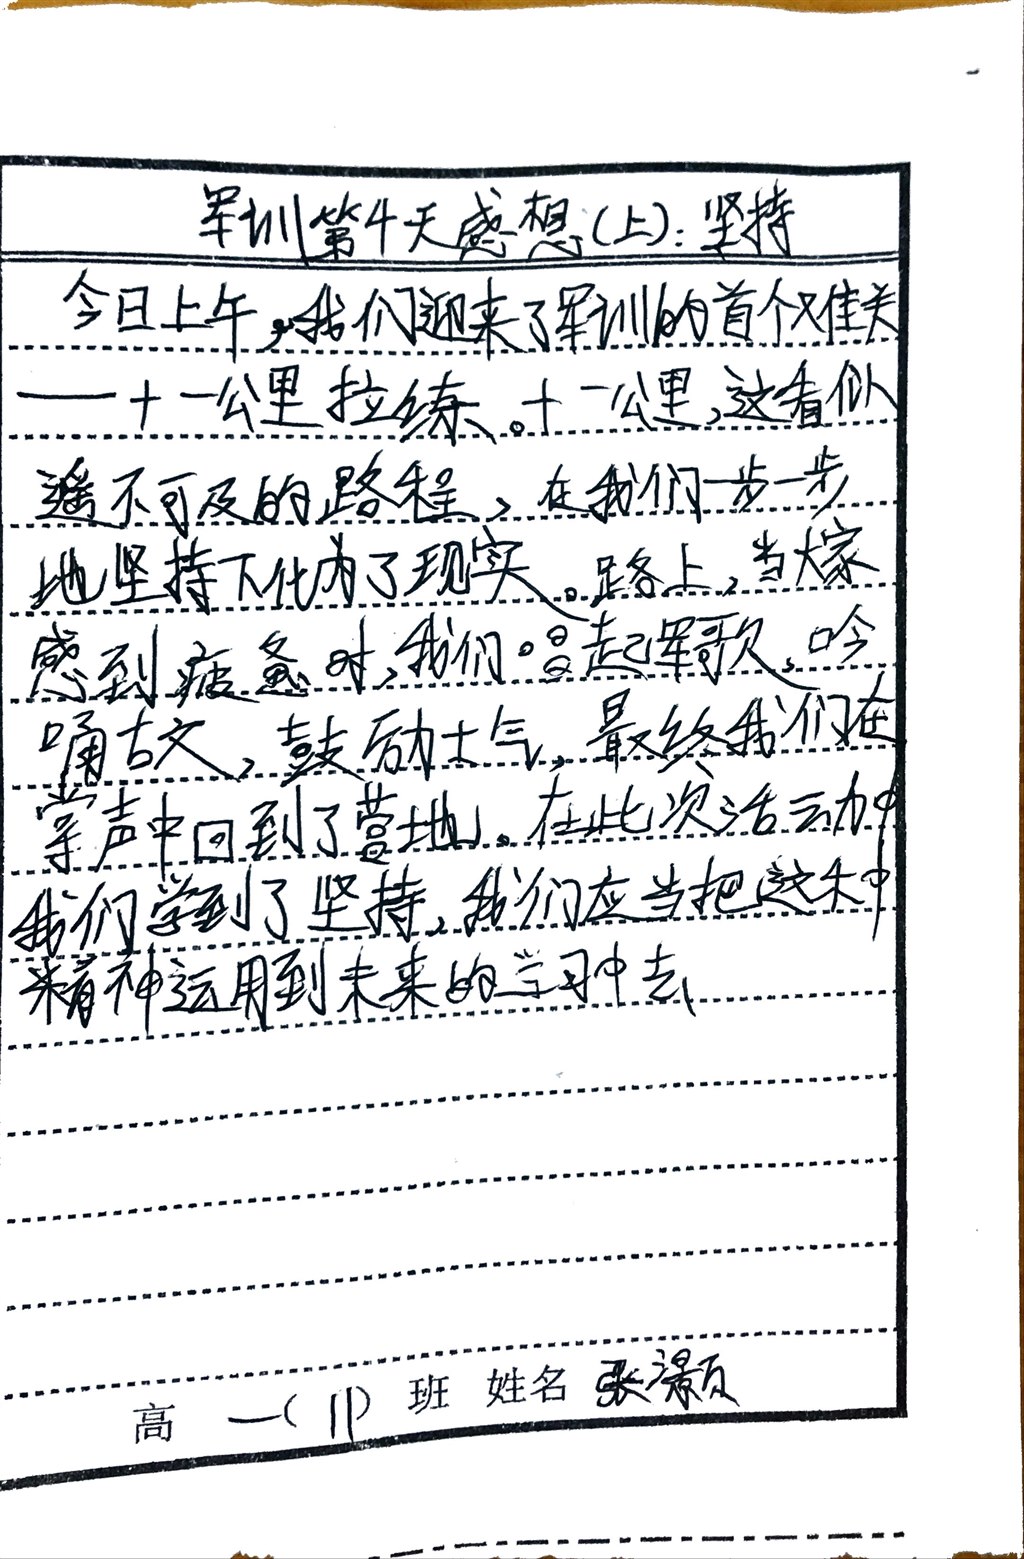 军训第4天感想(上)：坚持
今日上午，我们迎来了军训的首个难关
——十一公里拉练。十一公里，这看似
遥不可及的路程，在我们一步一步
地坚持下化为了现实。路上，当大家
感到疲惫时，我们唱起军歌，吟
诵古文，鼓励士气，最终我们在
掌声中回到了营地。在此次活动中
我们学到了坚持，我们应当把这种
精神运用到未来的学习中去
高一(11)班 姓名 张灏